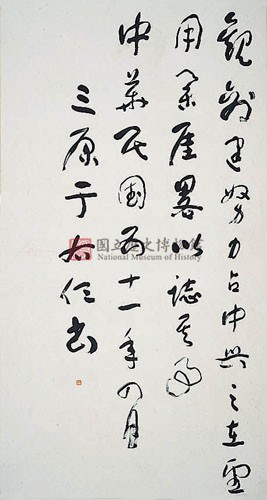 觀創建努力占中興之在望
用厓畧以誌其
中華民國五十一年四月
三原于右任書
國立歷史博物館
National Museum of History